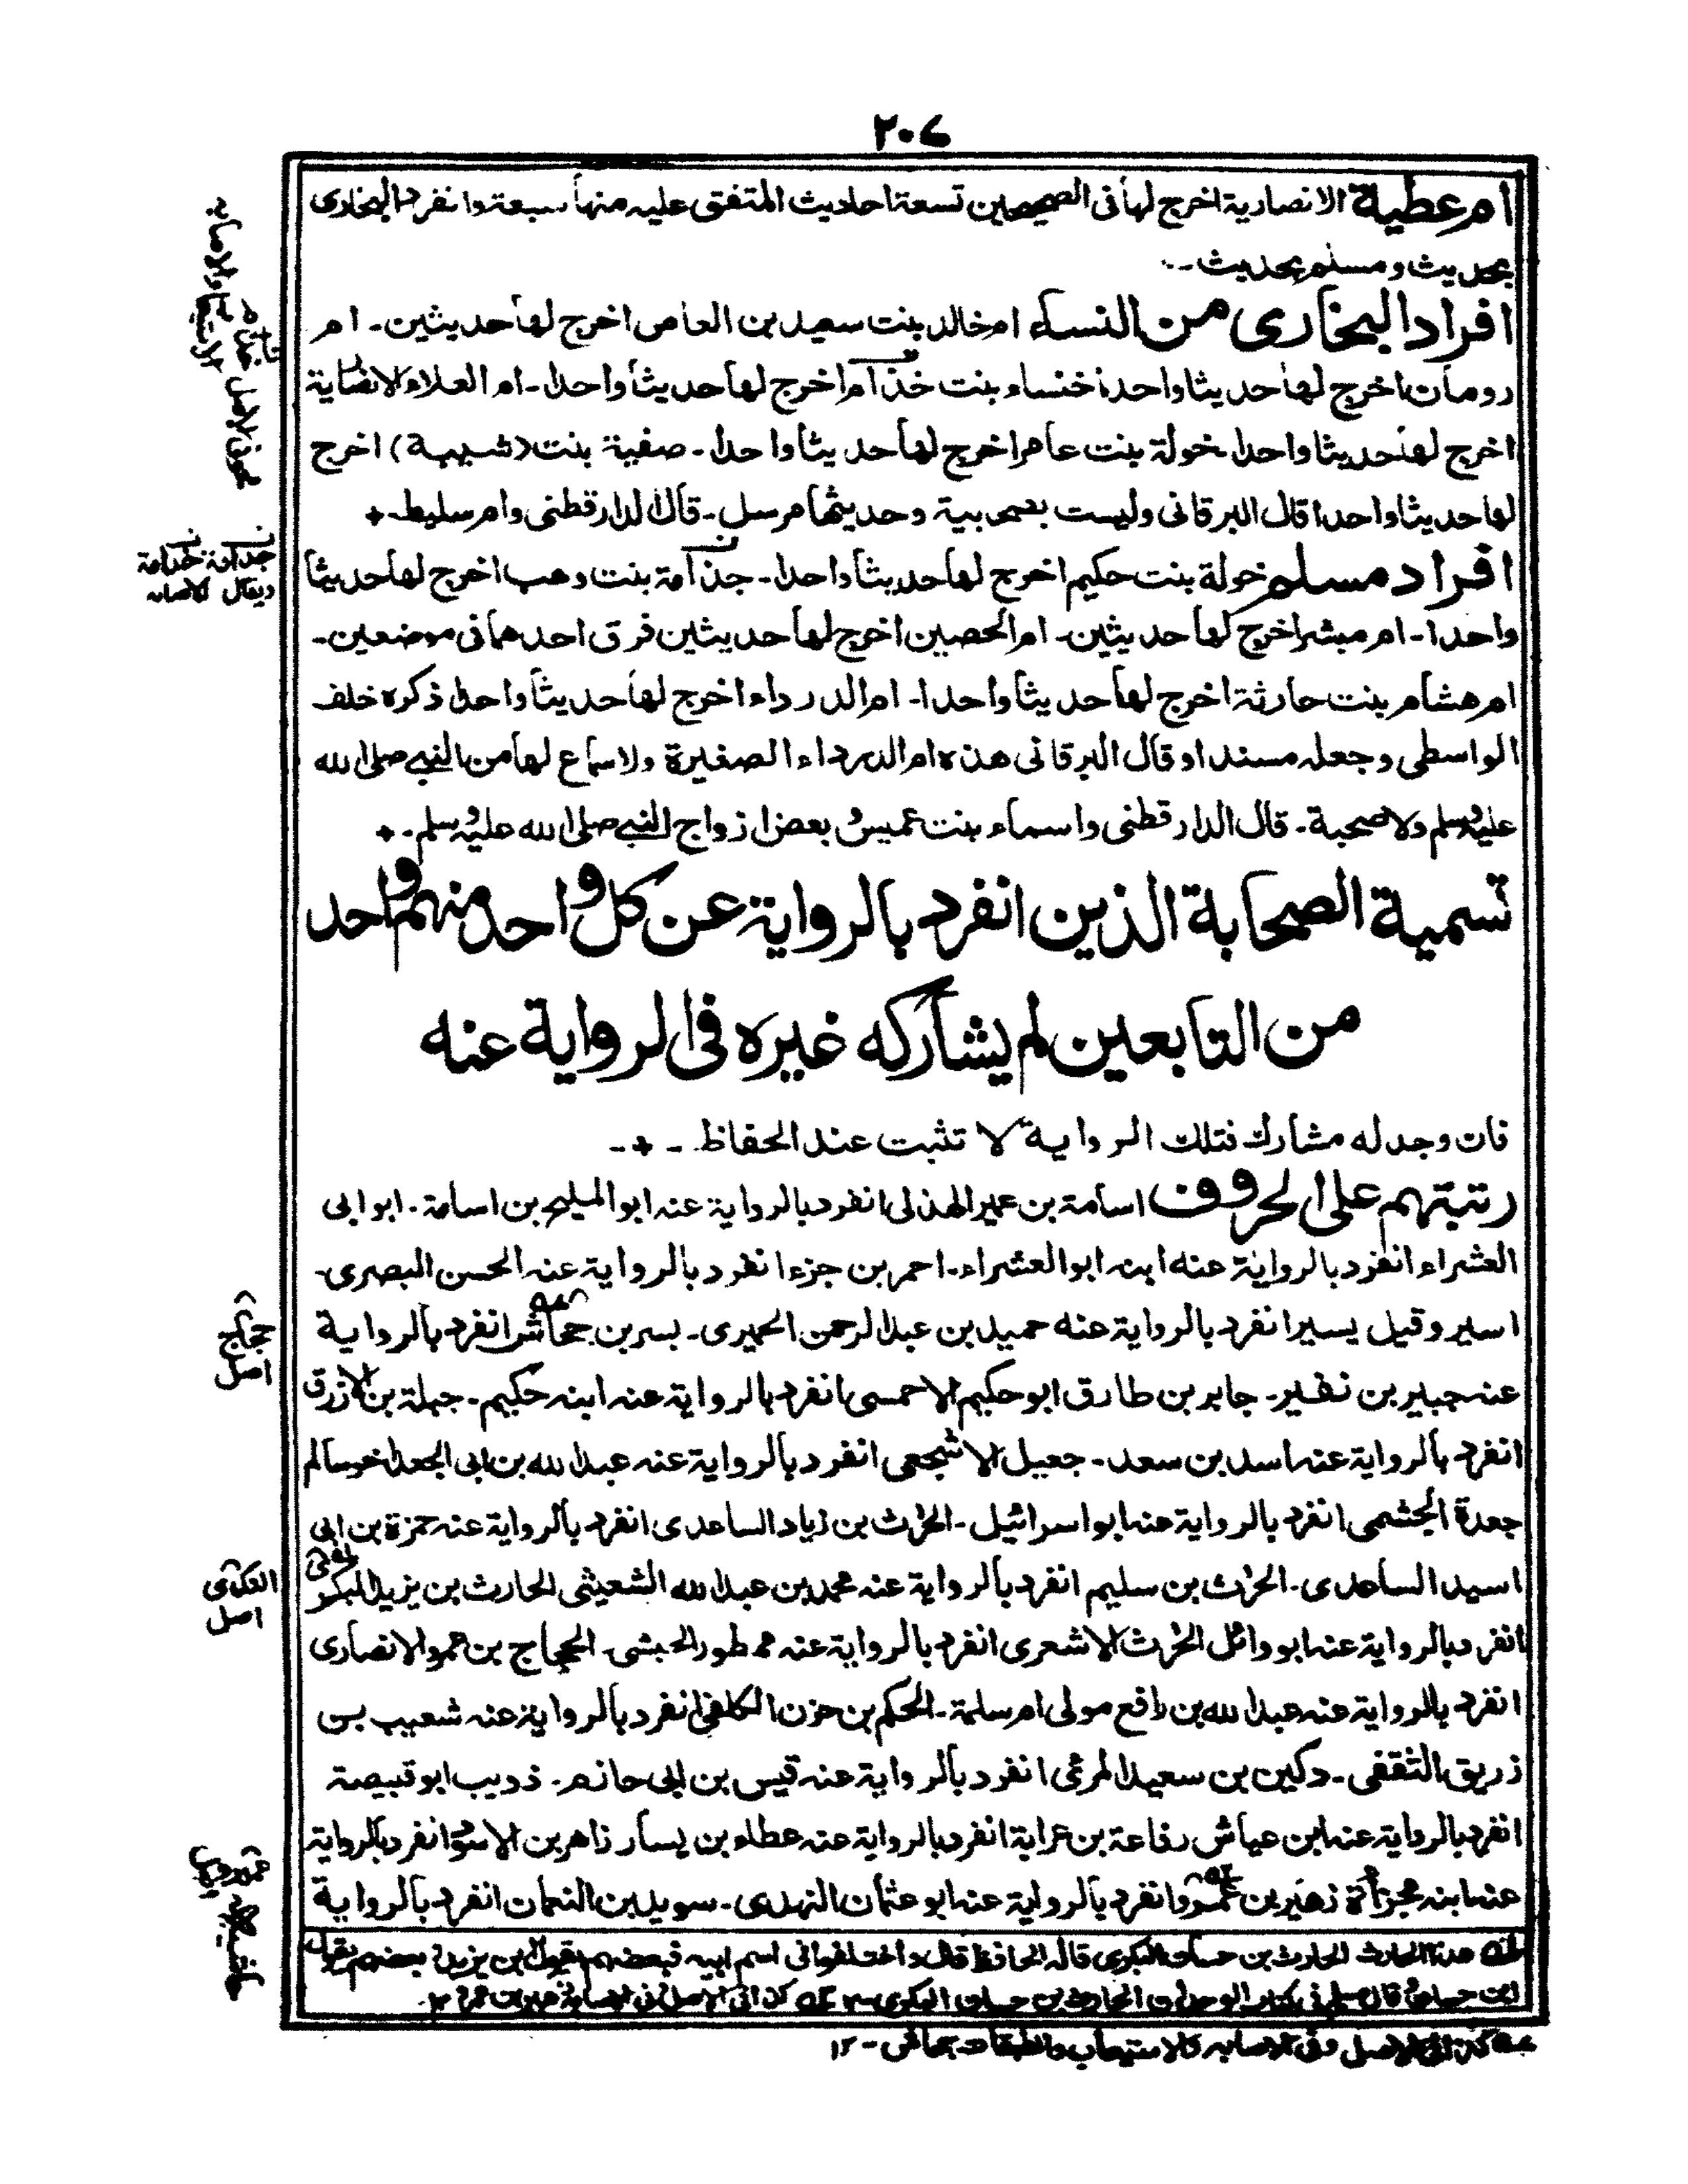 ٢٠٧
ام عطية الانصارية اخرج لها فى الصحيحين تسعة احاديث المتفق عليه منها سبعة وانفرد البخارى
بحديث ومسلم بحديث -
افراد البخارى من النساء ام خالد بنت سعيد بن العاص اخرج لها حديثين - ام
رومان اخرج لها حديثا واحدا خنساء بنت خذام اخرج لها حديثا واحدا - ام العلاء الانصارية
اخرج لها حديثا واحدا - خولة بنت عامر اخرج لها حديثا واحدا - صفية بنت (شيبة) اخرج
لها حديثا واحدا قال البرقانى وليست بصحابية وحديثها مرسل - قال الدارقطنى وام سليط -
افراد مسلم خولة بنت حكيم اخرج لها حديثا واحدا - جذامة بنت وهب اخرج لها حديثا
واحدا - ام مبشر اخرج لها حديثين - ام الحصين اخرج لها حديثين فرق احدهما فى موضعين -
ام هشام بنت حارثة اخرج لها حديثا واحدا - ام الدرداء اخرج لها حديثا واحدا ذكره خلف
الواسطى وجعله مسندا وقال البرقانى هذه ام الدرداء الصغيرة ولا سماع لها من النبى صلى الله
عليه وسلم ولا صحبة - قال الدارقطنى واسماء بنت عميس وبعض ازواج النبى صلى الله عليه وسلم -
تسمية الصحابة الذين انفرد بالرواية عن كل واحد منهم واحد
من التابعين لم يشاركه غيره فى الرواية عنه
فان وجد له مشارك فتلك الرواية لا تثبت عند الحفاظ -
رتبتهم على الحروف اسامة بن عمير الهذلى انفرد بالرواية عنه ابو المليح بن اسامة - ابو ابى
العشراء انفرد بالرواية عنه ابنه ابو العشراء - احمر بن جزء انفرد بالرواية عنه الحسن البصرى -
اسير وقيل يسير انفرد بالرواية عنه حميد بن عبد الرحمن الحميرى - بسر بن جحاش انفرد بالرواية
عنه جبير بن نفير - جابر بن طارق ابو حكيم الاحمسى انفرد بالرواية عنه ابنه حكيم - جبلة بن الازرق
انفرد بالرواية عنه اسد بن سعد - جعيل الاشجعى انفرد بالرواية عنه عبد الله بن ابى الجعد اخو سالم
جعدة الجشمى انفرد بالرواية عنه ابو اسرائيل - الحرث بن زياد الساعدى انفرد بالرواية عنه حمزة بن ابى
اسيد الساعدى - الحرث بن سليم انفرد بالرواية عنه محمد بن عبد الله الشعيثى الحارث بن يزيد البكرى
انفرد بالرواية عنه ابو وائل الحرث الاشعرى انفرد بالرواية عنه ممطور الحبشى - الحجاج بن عمرو الانصارى
انفرد بالرواية عنه عبد الله بن رافع مولى ام سلمة - الحكم بن حزن الكلفى انفرد بالرواية عنه شعيب بن
زريق الثقفى - دكين بن سعيد المرئى انفرد بالرواية عنه قيس بن ابى حازم - ذويب ابو قبيصة
انفرد بالرواية عنه ابن عياش رفاعة بن عرابة انفرد بالرواية عنه عطاء بن يسار زاهر بن الاسود انفرد بالرواية
عنه ابنه مجزأة زهير بن عمرو انفرد بالرواية عنه ابو عثمان النهدى - سويد بن النعمان انفرد بالرواية
هذا الحارث الحارث بن حسان البكرى قاله الحافظ قال واختلفوا فى اسم ابيه فبعضهم يقول ابن يزيد وبعضهم يقول
ابن حسان قال مسلم فى كتاب الوحدان الحارث بن حسان البكرى
كذا فى الاصل وفى الاصابه والاستيعاب والطبقات - ١٢
جدامة خدامة
ويقال
حجاج
اصل
اصل